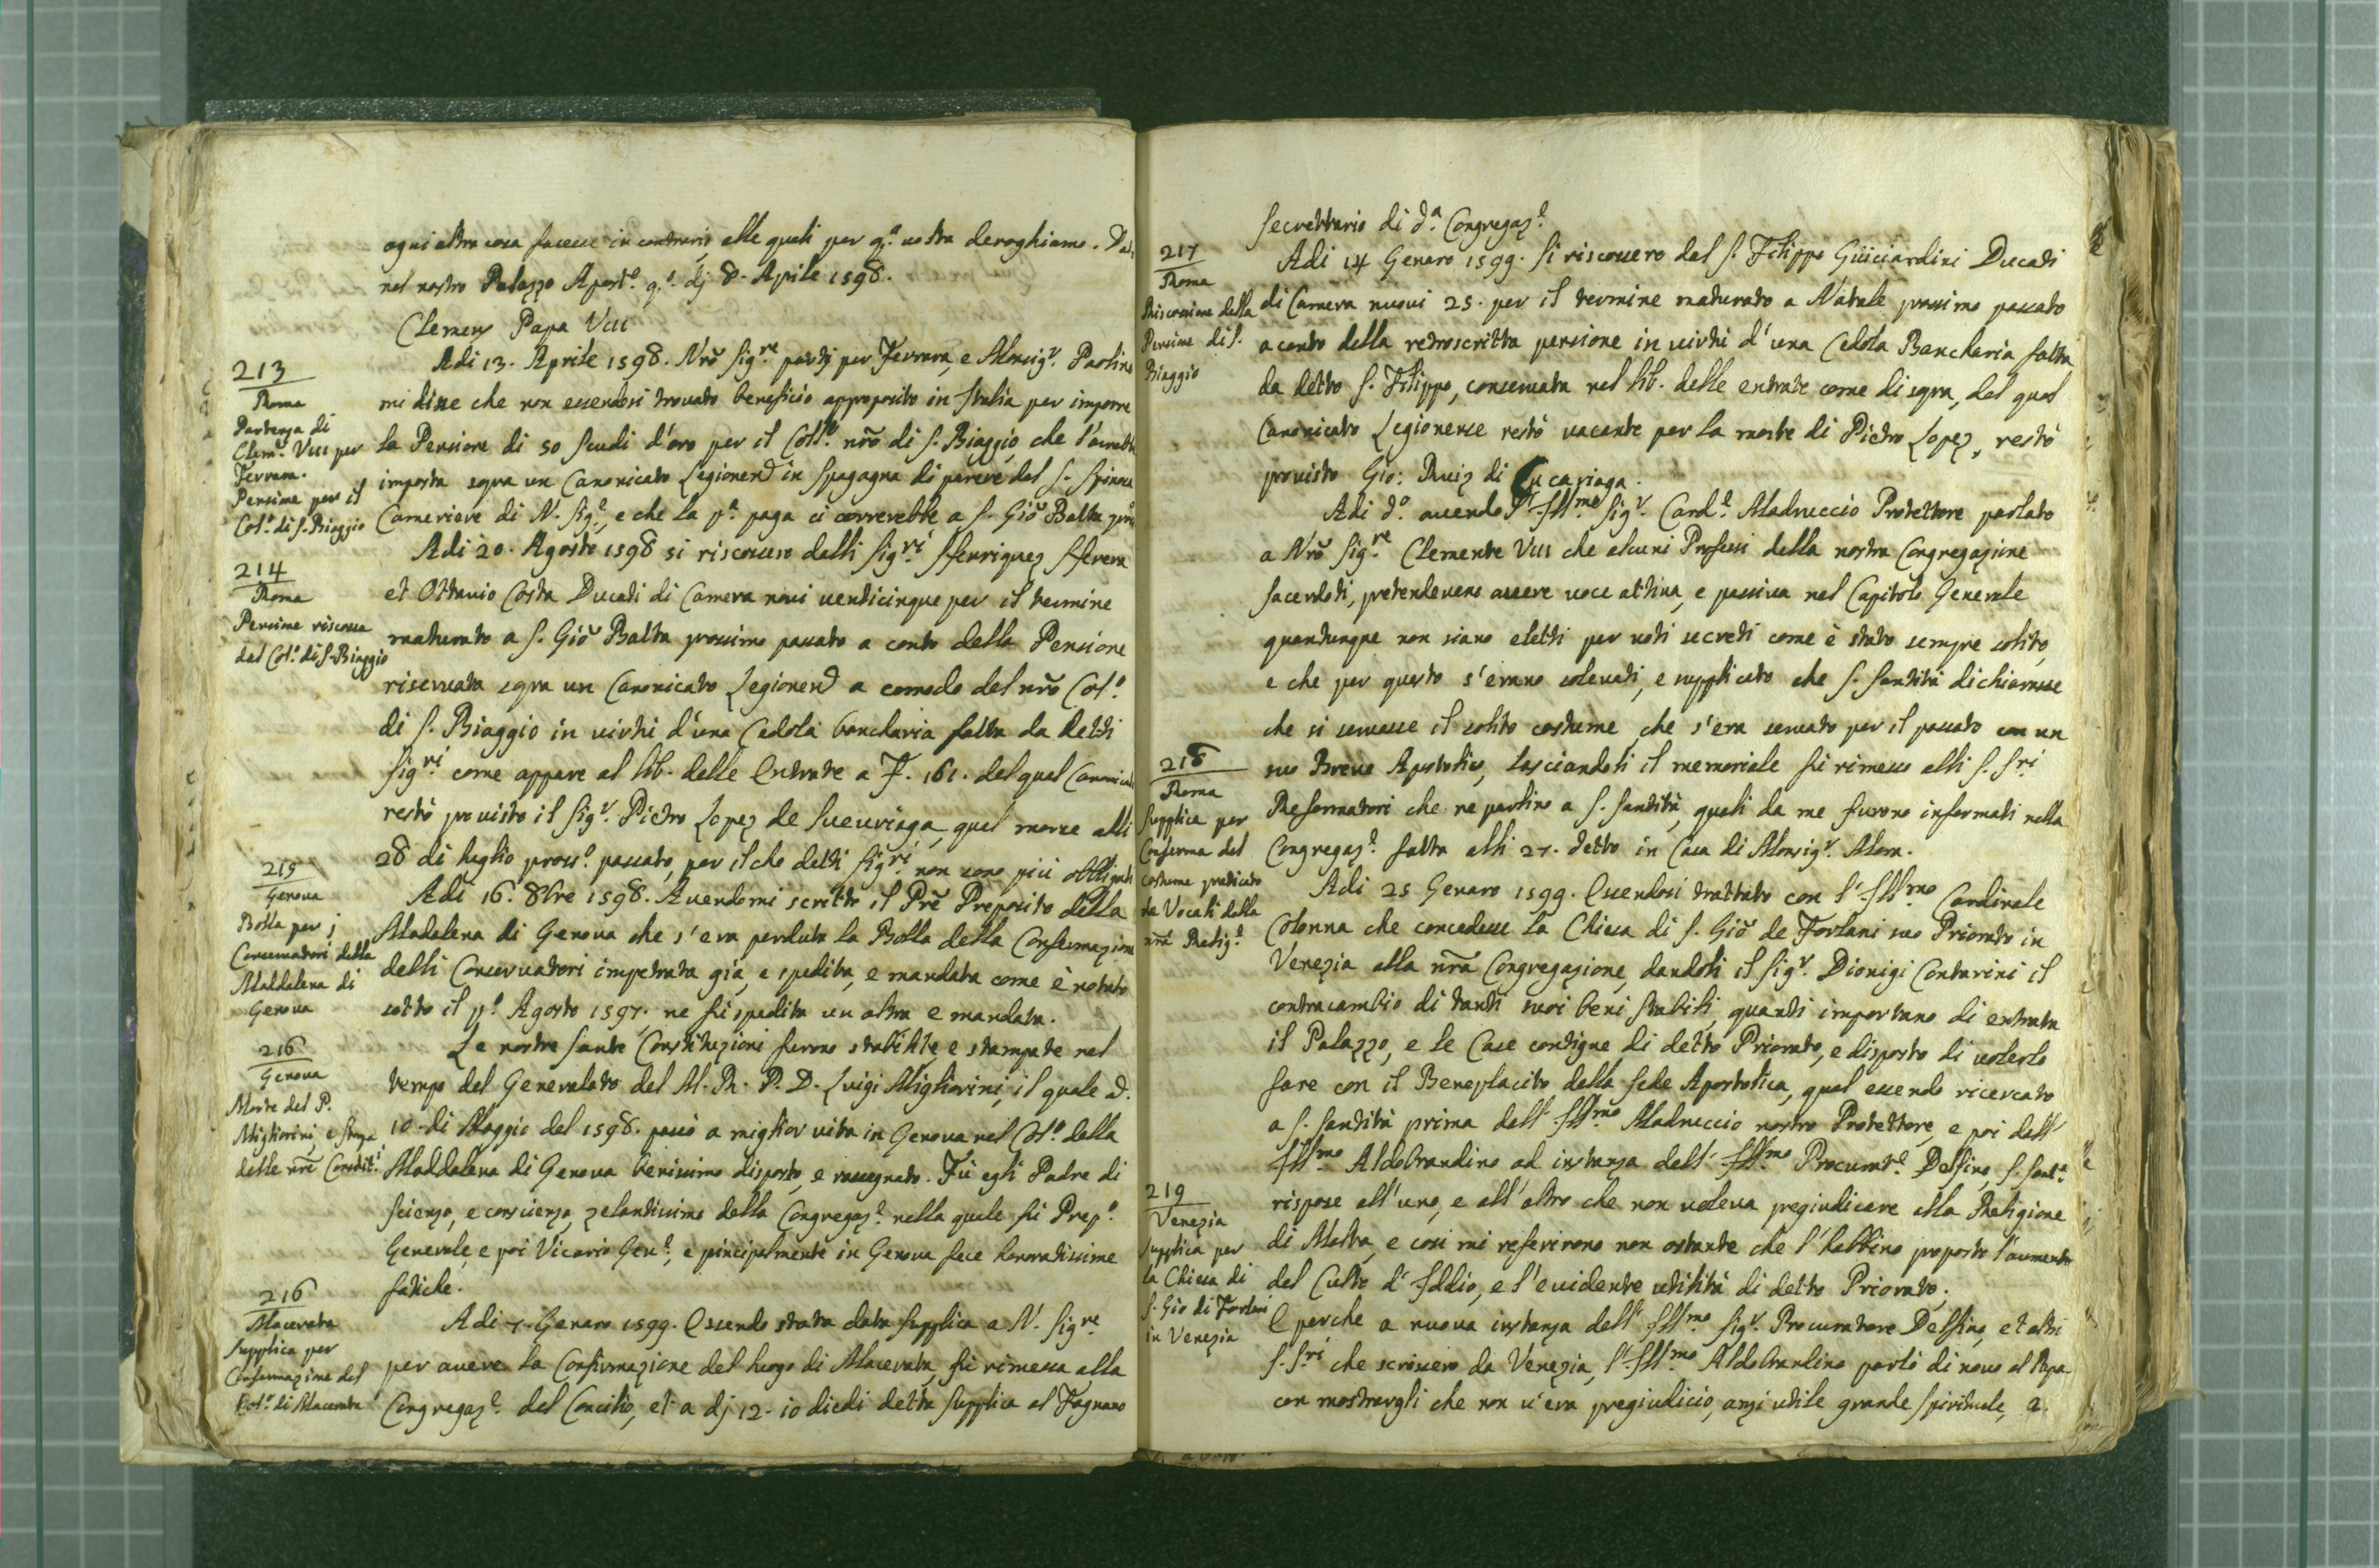 ogni altra cosa facesse in contrario, alle quali per q.ª nostra deroghiamo. Dat.
nel nostro Palazzo Apost.º q.º dj 8. Aprile 1598.
Clemens Papa VIII
213
Roma
Partenza di
Clem.e VIII per
Ferrara.
Pensione per il
Col.º di S. Biaggio
Adi 13. Aprile 1598. Nrõ Sig.re partj per Ferrara, e Monsig.r Paolino
mi disse che non essendosi trovato beneficio approposito in Italia per imporre
la Pensione di 50 scudi d'oro per il Coll.º nrõ di S. Biaggio, che l'avrebbe
imposta sopra un Canonicato Legionen in Spagagna di parere del S. Spinosa
Cameriere di N. Sig.e, e che la p.ª paga ci correrebbe a S. Giõ Batta
214
Roma
Pensione riscossa
dal Col.º di S. Biaggio
Adi 20. Agosto 1598 si riscossero dalli Sig.ri Henriquez Herera
et Ottavio Costa Ducati di Camera novi venticinque per il termine
maturato a S. Giõ Batta prossimo passato a conto della Pensione
riservata sopra un Canonicato Legionen a comodo del nrõ Col.º
di S. Biaggio in virtù d'una Cedola bancharia fatta da detti
Sig.ri come appare al lib. delle Entrate a F. 161. del qual Canonicato
restò provisto il Sig.r Pietro Lopez de Sucuriaga, qual morse alli
28 di luglio pross.º passato, per il che detti Sig.ri non sono più obbligati
215
Genova
Bolla per j
Conservatori della
Maddalena di
Genova
Adi 16. 8bre 1598. Avendomi scritto il Prẽ Preposito della
Madalena di Genova che s'era perduta la Bolla della Confermazione
delli Conservatori impetrata già, e spedita, e mandata come è notato
sotto il p.º Agosto 1597. ne fu spedita un altra e mandata.
216
Genova
Morte del P.
Migliorini, e stampa
delle nrẽ Constit.i
Le nostre Sante Constituzioni furono stabilite e stampate nel
tempo del Generalato del M. R. P. D. Luigi Migliorini, il quale a.
10. di Maggio del 1598. passò a miglior vita in Genova nel Col.º della
Maddalena di Genova benissimo disposto, e rassegnato. Fù egli Padre di
scienza, e conscienza, zelantissimo della Congregaz.e nella quale fu Prep.º
Generale, e poi Vicario Gen.e, e pincipalmente in Genova fece honoratissime
fatiche.
216
Macerata
Supplica per
Confermazione del
Col.º di Macerata
Adi 7. Genaro 1599. Essendo stata data supplica a N. Sig.re
per avere la Confirmazione del luogo di Macerata, fu rimessa alla
Congregaz.e del Concilio, et a dj 12. io diedi detta supplica al Fagnano
secrettario di d.ª Congregaz.e
217
Roma
Riscossione della
Pensione di S.
Biaggio
Adi 14 Genaro 1599. si riscossero dal S. Filippo Guiciardini Ducati
di Camera nuovi 25. per il termine maturato a Natale prossimo passato
a conto della retroscritta pensione in virtù d'una Cedola Bancharia fatta
da detto S. Filippo, conservata nel lib. delle entrate come di sopra, del qual
Canonicato Legionense restò vacante per la morte di Pietro Lopez, restò
provisto Gio: Ruiz di
218
Roma
Supplica per
Conferma del
costume praticato
da Vocali della
nrã Relig.e
Adi d.º avendo l'Ill.mo Sig.r Card.e Madruccio Protettore parlato
a Nrõ Sig.re Clemente VIII che alcuni Professi della nostra Congregazione
sacerdoti, pretendevano avere voce attiva, e passiva nel Capitolo Generale
quantunque non siano eletti per voti secreti come è stato sempre solito,
e che per questo s'erano solevati, e supplicato che S. Santità dichiarasse
che si servasse il solito costume, che s'era servato per il passato con un
suo Breve Apostolico, lasciandoli il memoriale fu rimesso alli S. S.ri
Reformatori che ne parlino a S. Santità, quali da me furono informati nella
Congregaz.e fatta alli 27. detto in Casa di Monsig.r Mora.
219
Venezia
Supplica per
la Chiesa di
S. Gio di Forlani
in Venezia
Adi 25 Genaro 1599. Essendosi trattato con l'Ill.mo Cardinale
Colonna che concedesse la Chiesa di S. Giõ de Forlani suo Priorato in
Venezia alla nrã Congregazione, dandoli il Sig.r Dionigi Contarini il
contracambio di tanti suoi beni stabili, quanti importano di entrata
il Palazzo, e le Case contigue di detto Priorato, e disposto di volerlo
fare con il Beneplacito della Sede Apostolica, qual essendo ricercato
a S. Santità prima dall'Ill.mo Madruccio nostro Protettore, e poi dall'
Ill.mo Aldobrandino ad instanza dell'Ill.mo Procurat.e Delfino, S. Sant.à
rispose all'uno, e all'altro che non voleva pregiudicare alla Religione
di Malta, e così mi referirono non ostante che l'habbino proposto l'aumento
del Culto d'Iddio, e l'evidente utilità di detto Priorato.
E perche a nuova instanza dell'Ill.mo Sig.r Procuratore Delfino, et altri
S. S.ri che scrissero da Venezia, l'Ill.mo Aldobrandino parlò di novo al Papa
con mostrargli che non v'era pregiudicio, anzi utile grande spirituale, a.